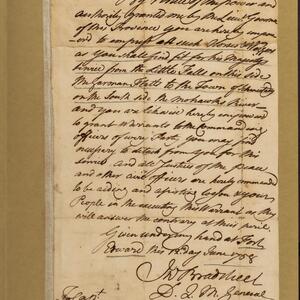 By Virtue of the Power and
Authority granted me by the Lieut Governor
of this Province you are hereby empow
ered to impress all such
as you shall find fit for his Majestys
Service from the Little Falls on this side
the German Flatts to the Town of
on the South side the Mohawks River
and you are likewise hereby empowered
to grant Warrants to the Commanding
officers of every Party you may find
necessary to detach from you for this
service and all Justices of the peace
and other civil officers are hereby commanded
to be aiding and assisting to you & your
People in the executing this Warrant as they
will answer the contrary at their peril
Given under my hand at Fort
Edward this 12 day June 1758
Jno Bradstreet
D. Q. M. General
To Capt